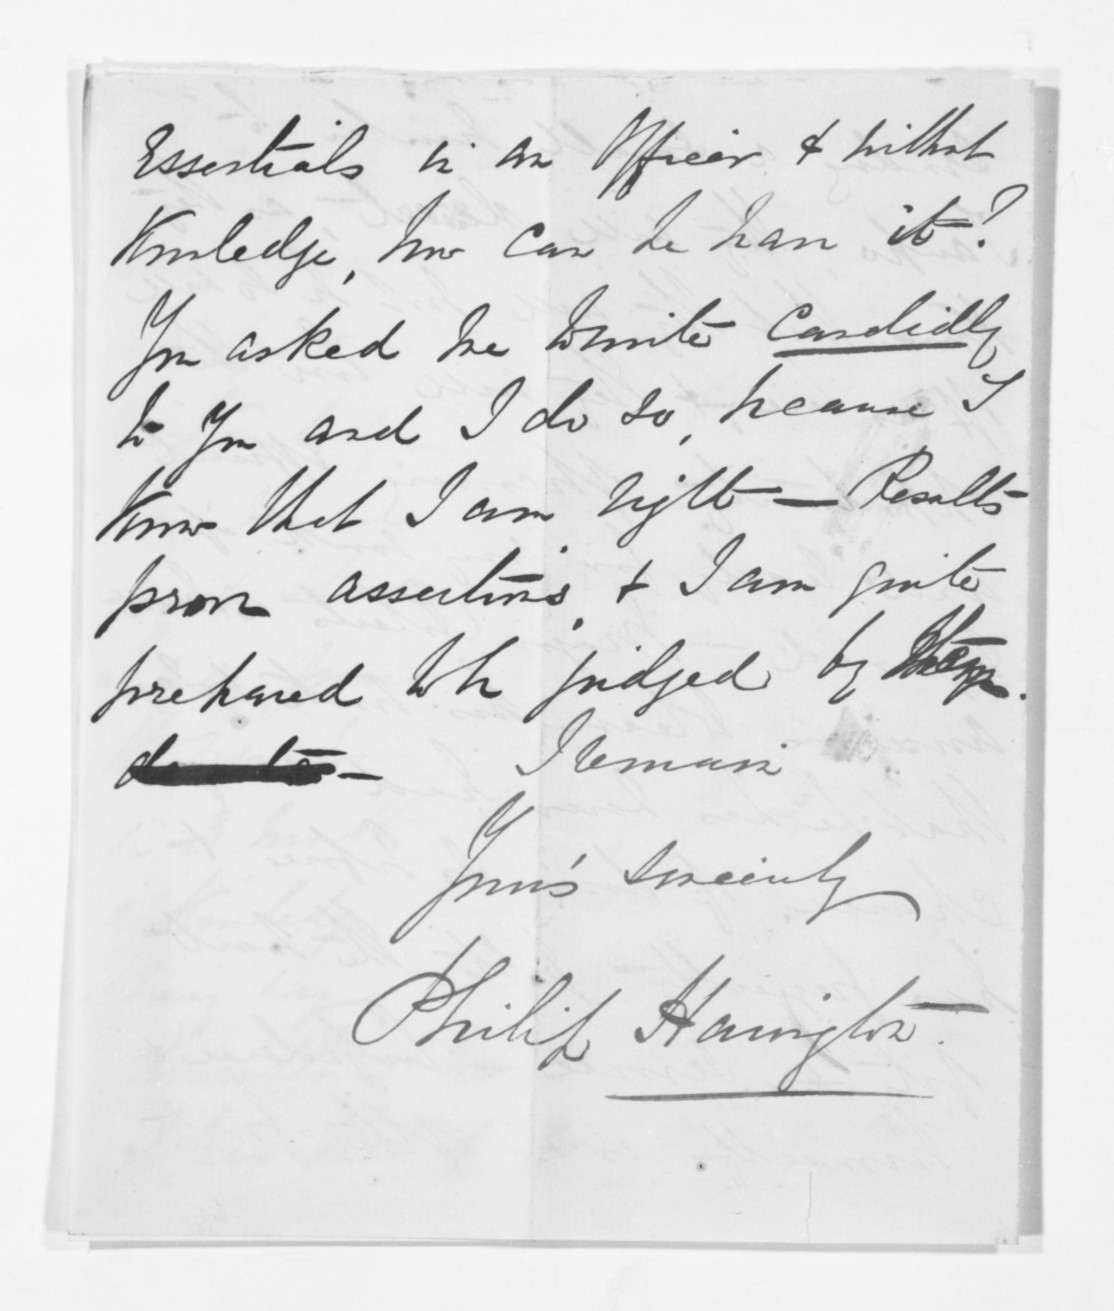 Essentials in an Officer & without
Knowledge, how can he have it?
You asked me to write Candidly
to you and I do so, because I
Know that I am right — Results
prove assertions, & I am quite
prepared to be judged by them.
I remain
Your's sincerely
Philip Harington.